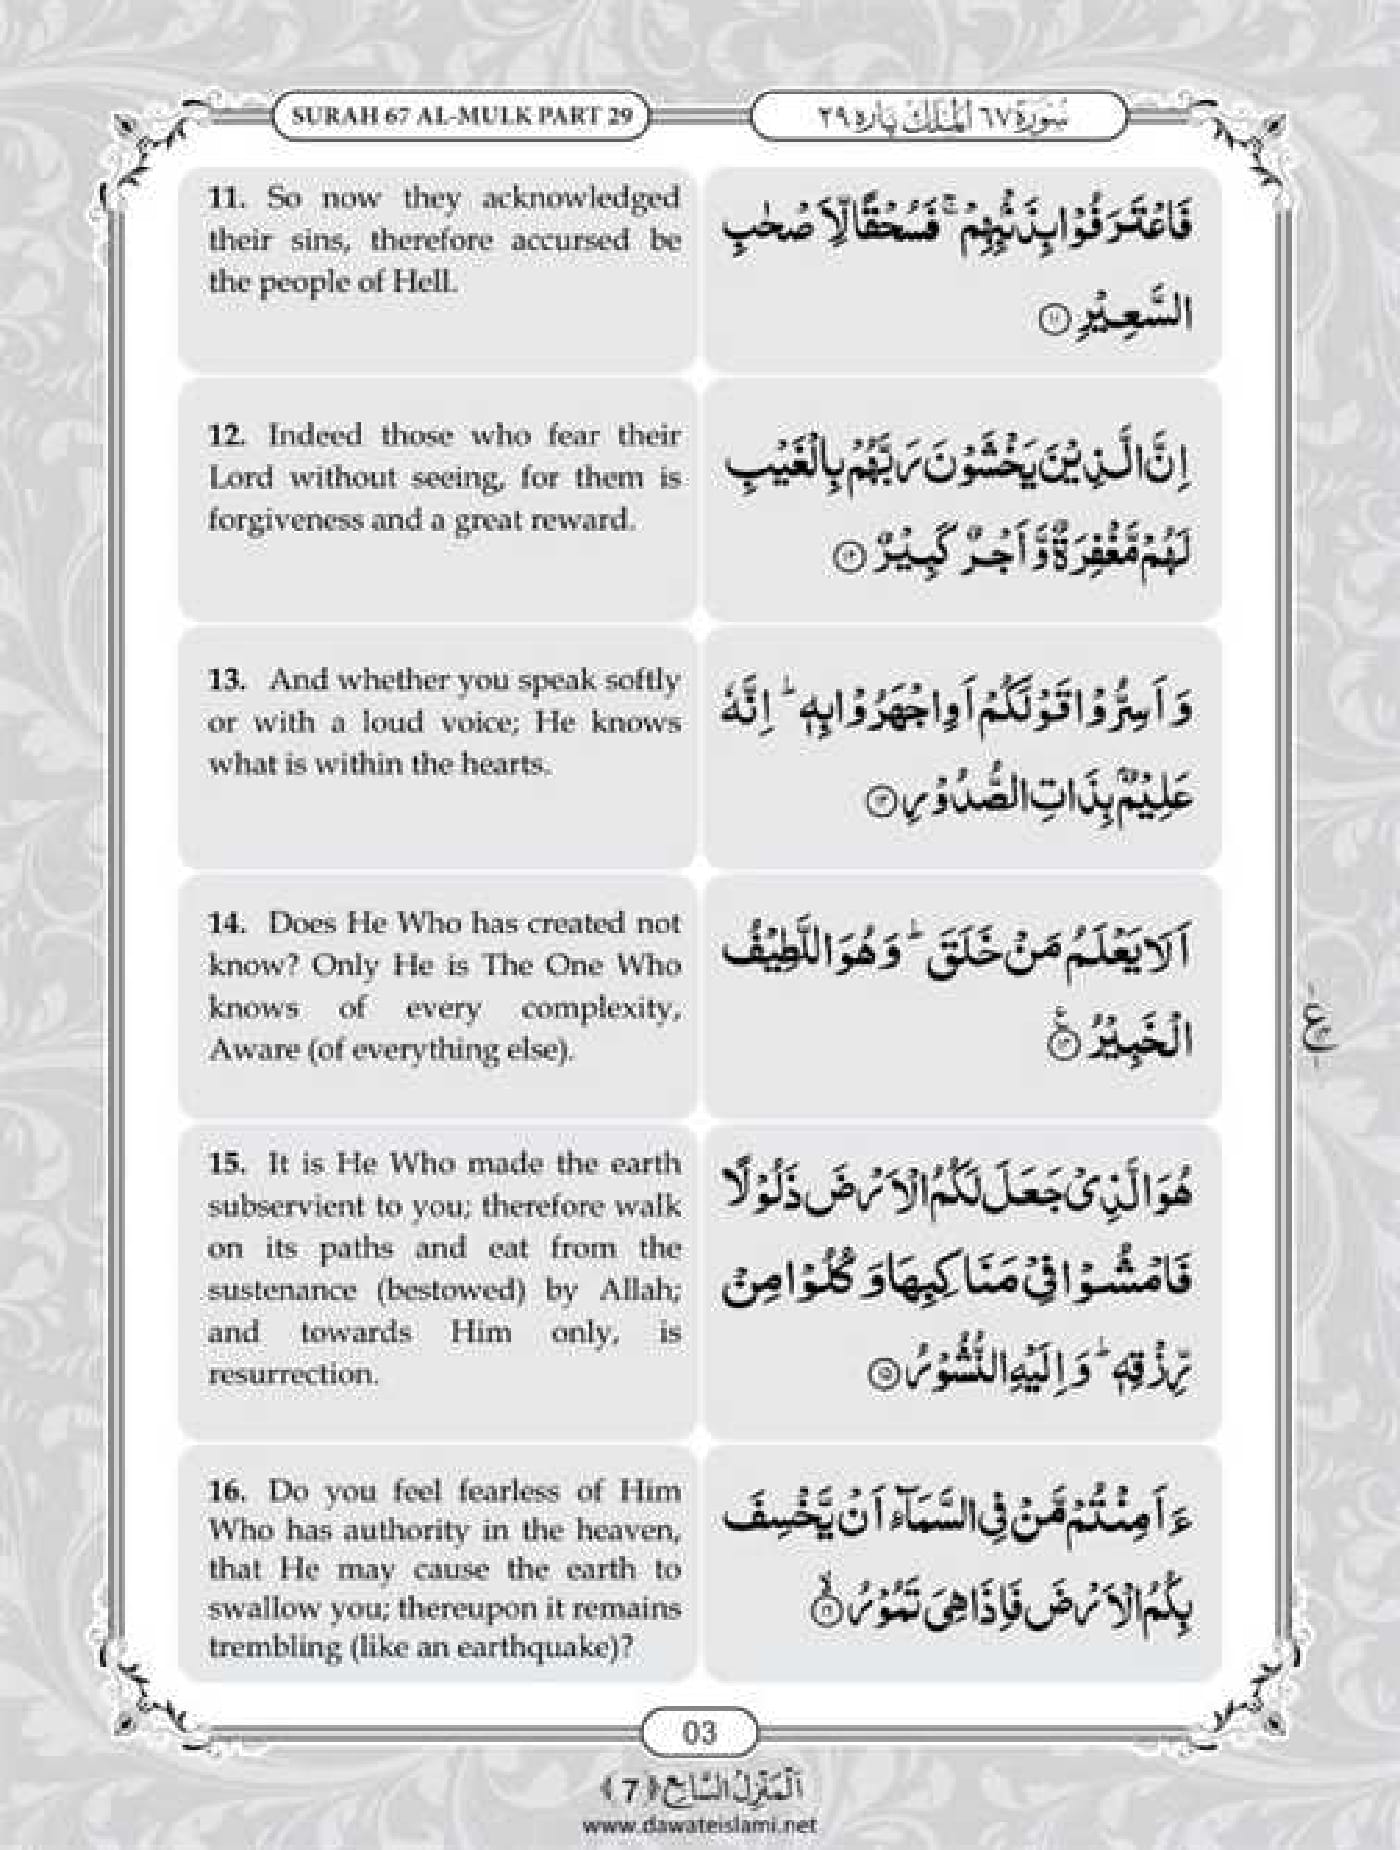 SURAH 67 AL-MULK PART 29
سُوْرَةُ ٦٧ اَلْمُلْك پارہ ٢٩
11. So now they acknowledged
their sins, therefore accursed be
the people of Hell.
فَاعْتَرَفُوْا بِذَنْۢبِهِمْ ۚ فَسُحْقًا لِّاَصْحٰبِ
السَّعِيْرِ ﴿١١﴾
12. Indeed those who fear their
Lord without seeing, for them is
forgiveness and a great reward.
اِنَّ الَّذِيْنَ يَخْشَوْنَ رَبَّهُمْ بِالْغَيْبِ
لَهُمْ مَّغْفِرَةٌ وَّاَجْرٌ كَبِيْرٌ ﴿١٢﴾
13. And whether you speak softly
or with a loud voice; He knows
what is within the hearts.
وَاَسِرُّوْا قَوْلَكُمْ اَوِ اجْهَرُوْا بِهٖ ؕ اِنَّهٗ
عَلِيْمٌۢ بِذَاتِ الصُّدُوْرِ ﴿١٣﴾
14. Does He Who has created not
know? Only He is The One Who
knows of every complexity,
Aware (of everything else).
اَلَا يَعْلَمُ مَنْ خَلَقَ ؕ وَهُوَ اللَّطِيْفُ
الْخَبِيْرُ ﴿١٤﴾
ع
15. It is He Who made the earth
subservient to you; therefore walk
on its paths and eat from the
sustenance (bestowed) by Allah;
and towards Him only, is
resurrection.
هُوَ الَّذِيْ جَعَلَ لَكُمُ الْاَرْضَ ذَلُوْلًا
فَامْشُوْا فِيْ مَنَاكِبِهَا وَكُلُوْا مِنْ
رِّزْقِهٖ ؕ وَاِلَيْهِ النُّشُوْرُ ﴿١٥﴾
16. Do you feel fearless of Him
Who has authority in the heaven,
that He may cause the earth to
swallow you; thereupon it remains
trembling (like an earthquake)?
ءَاَمِنْتُمْ مَّنْ فِي السَّمَآءِ اَنْ يَّخْسِفَ
بِكُمُ الْاَرْضَ فَاِذَا هِيَ تَمُوْرُ ﴿١٦﴾
03
اَلْمَنْزِلُ السَّابِع ﴿7﴾
www.dawateislami.net